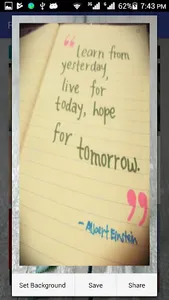 7:43 PM
“learn from
yesterday,
live for
today, hope
for tomorrow.
”
- Albert Einstein
Set Background Save Share